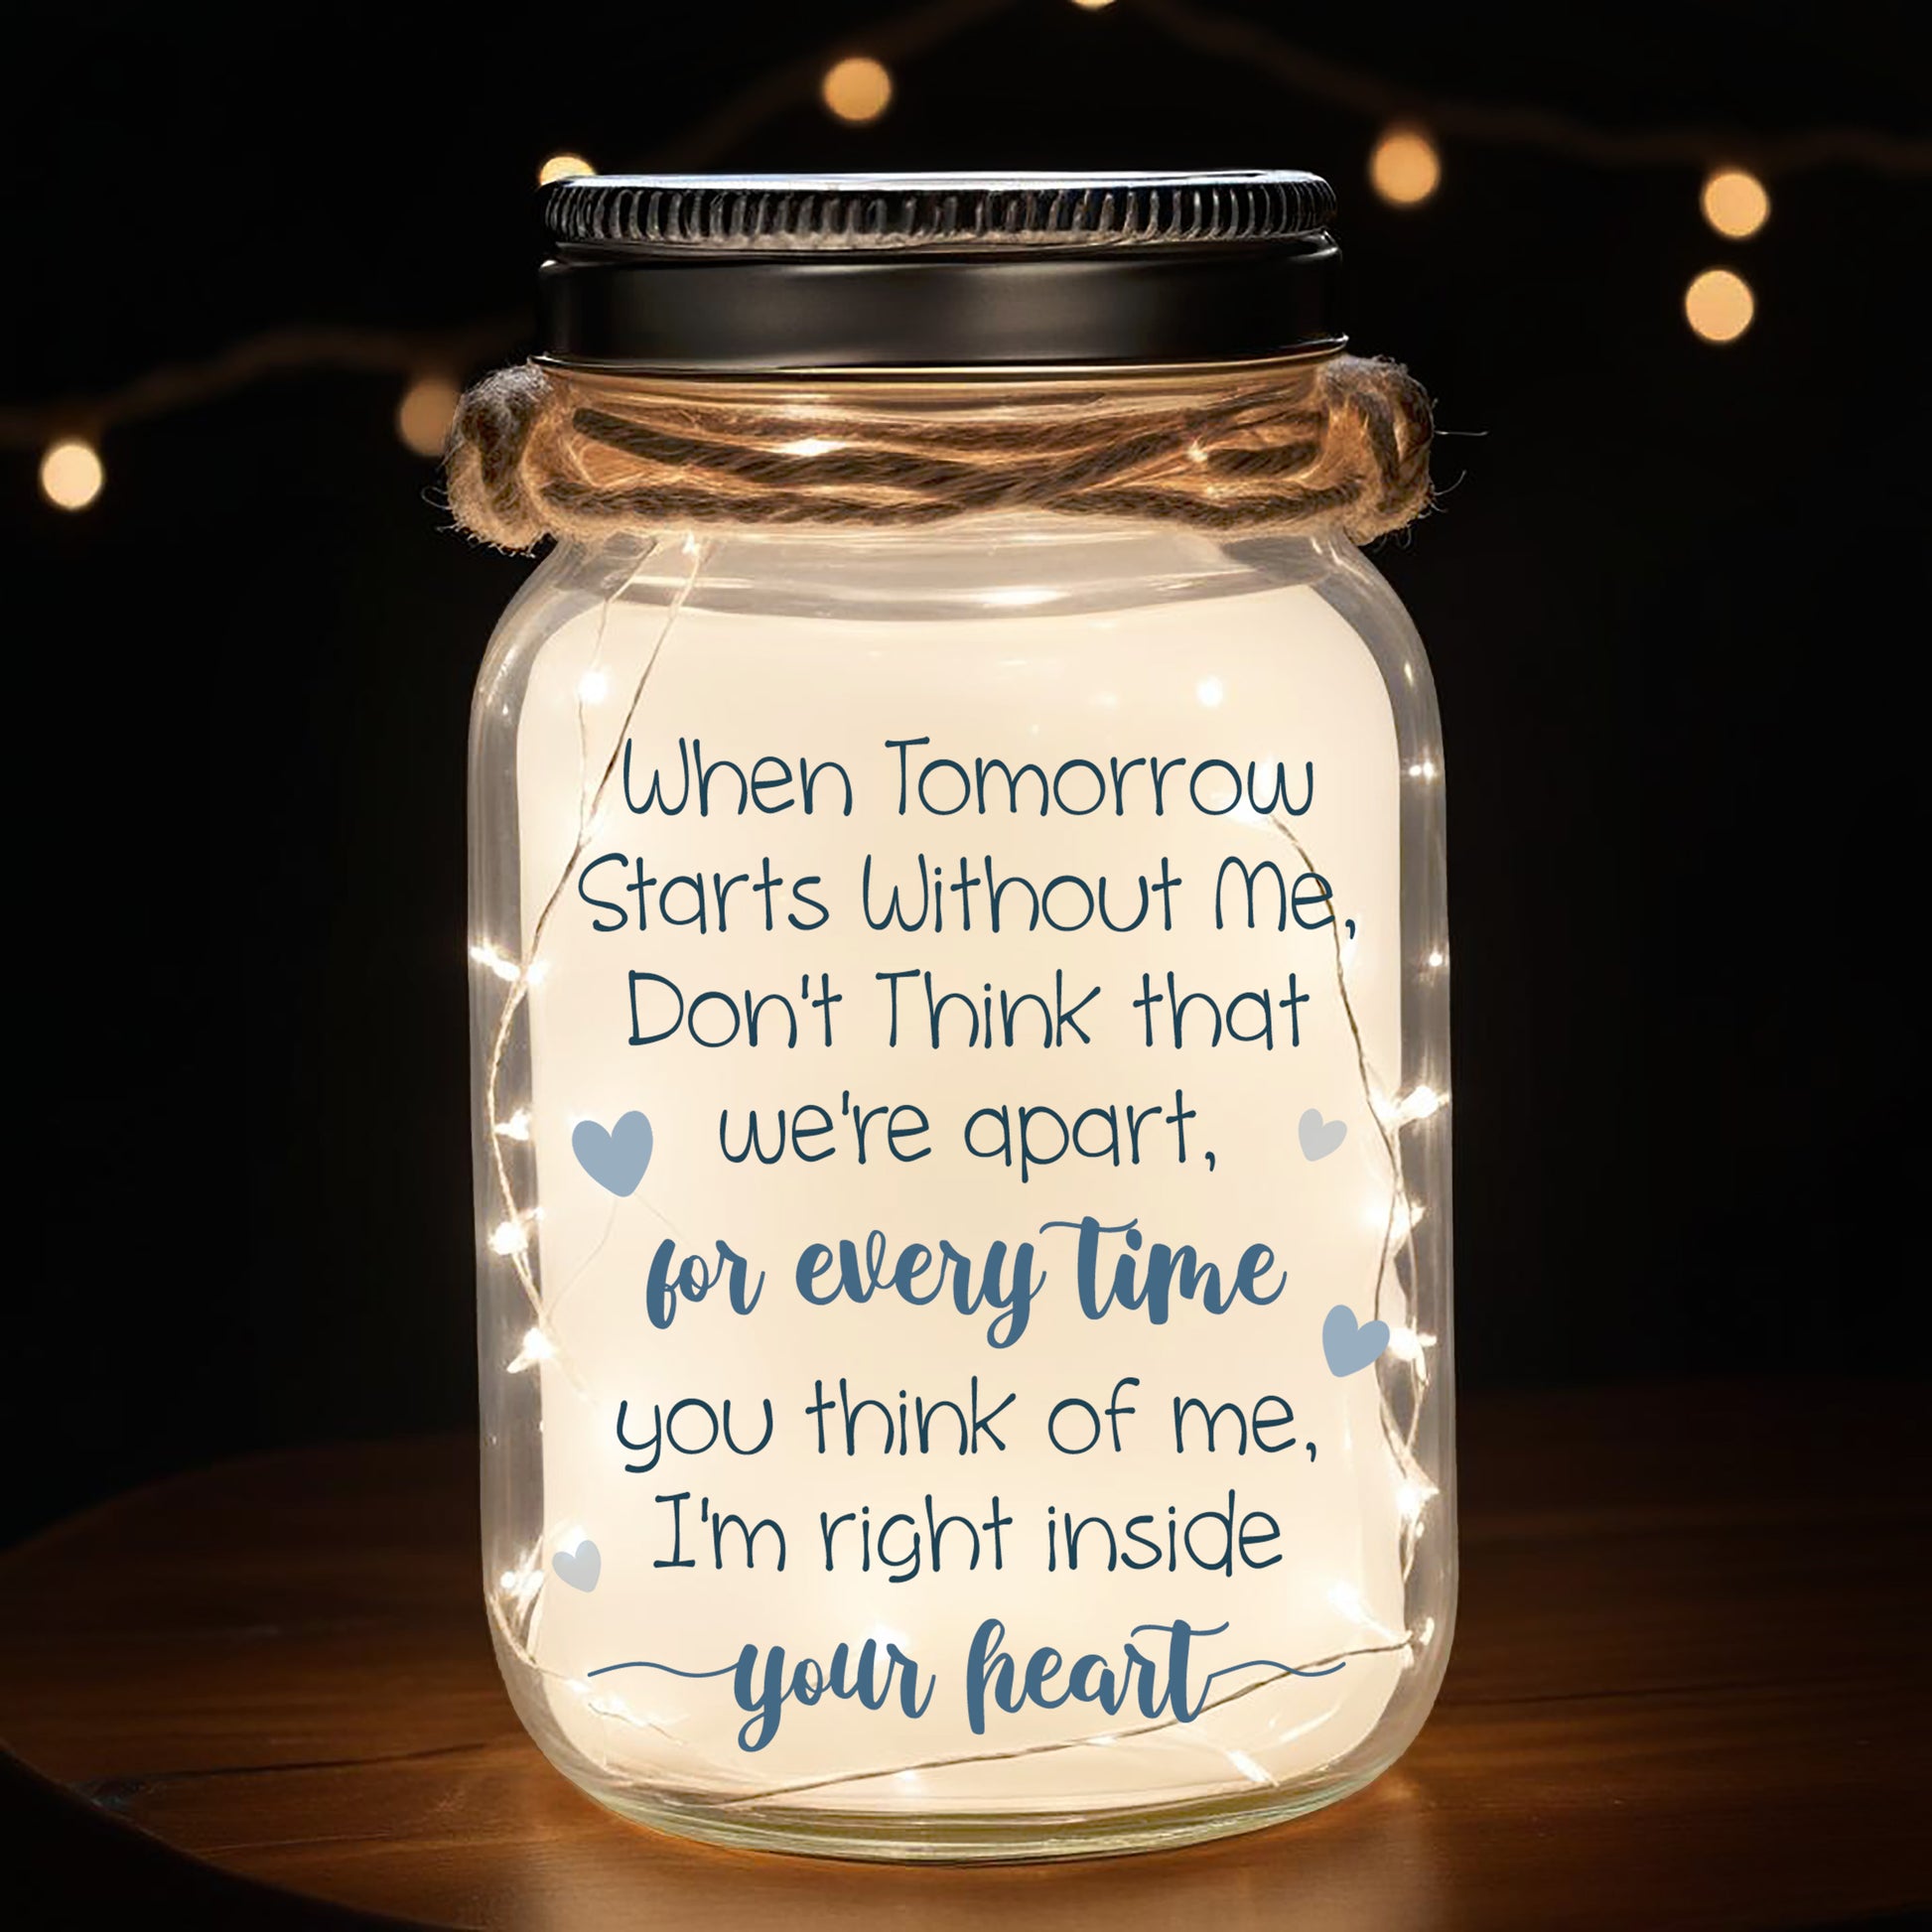 When Tomorrow
Starts Without Me,
Don't Think that
we're apart,
for every time
you think of me,
I'm right inside
your heart